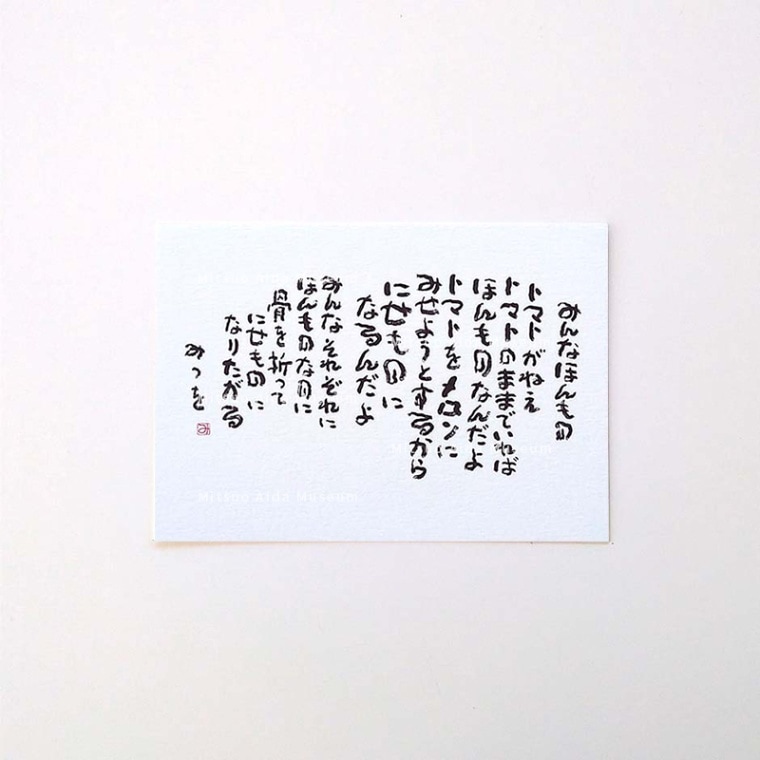 みんなほんもの
トマトがねえ
トマトのままでいれば
ほんものなんだよ
トマトをメロンに
みせようとするから
にせものに
なるんだよ
みんなそれぞれに
ほんものなのに
骨を折って
にせものに
なりたがる
みつを
み
Mitsuo Aida Museum